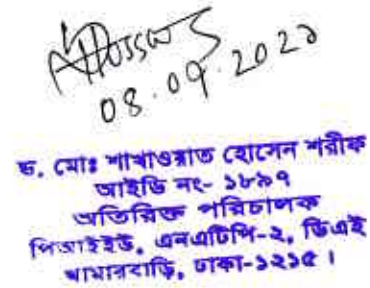 08.09.2021
ড. মোঃ শাখাওয়াত হোসেন শরীফ
আইডি নং- ১৮৯৭
অতিরিক্ত পরিচালক
পিআইইউ, এনএটিপি-২, ডিএই
খামারবাড়ি, ঢাকা-১২১৫।